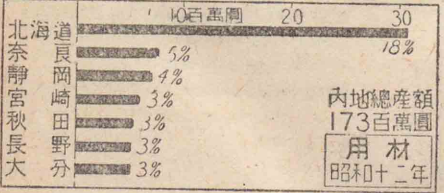 10百萬圓 20 30
北海道 18%
奈良 5%
靜岡 4%
宮崎 3%
秋田 3%
長野 3%
大分 3%
內地總產額
173百萬圓
用材
昭和十二年